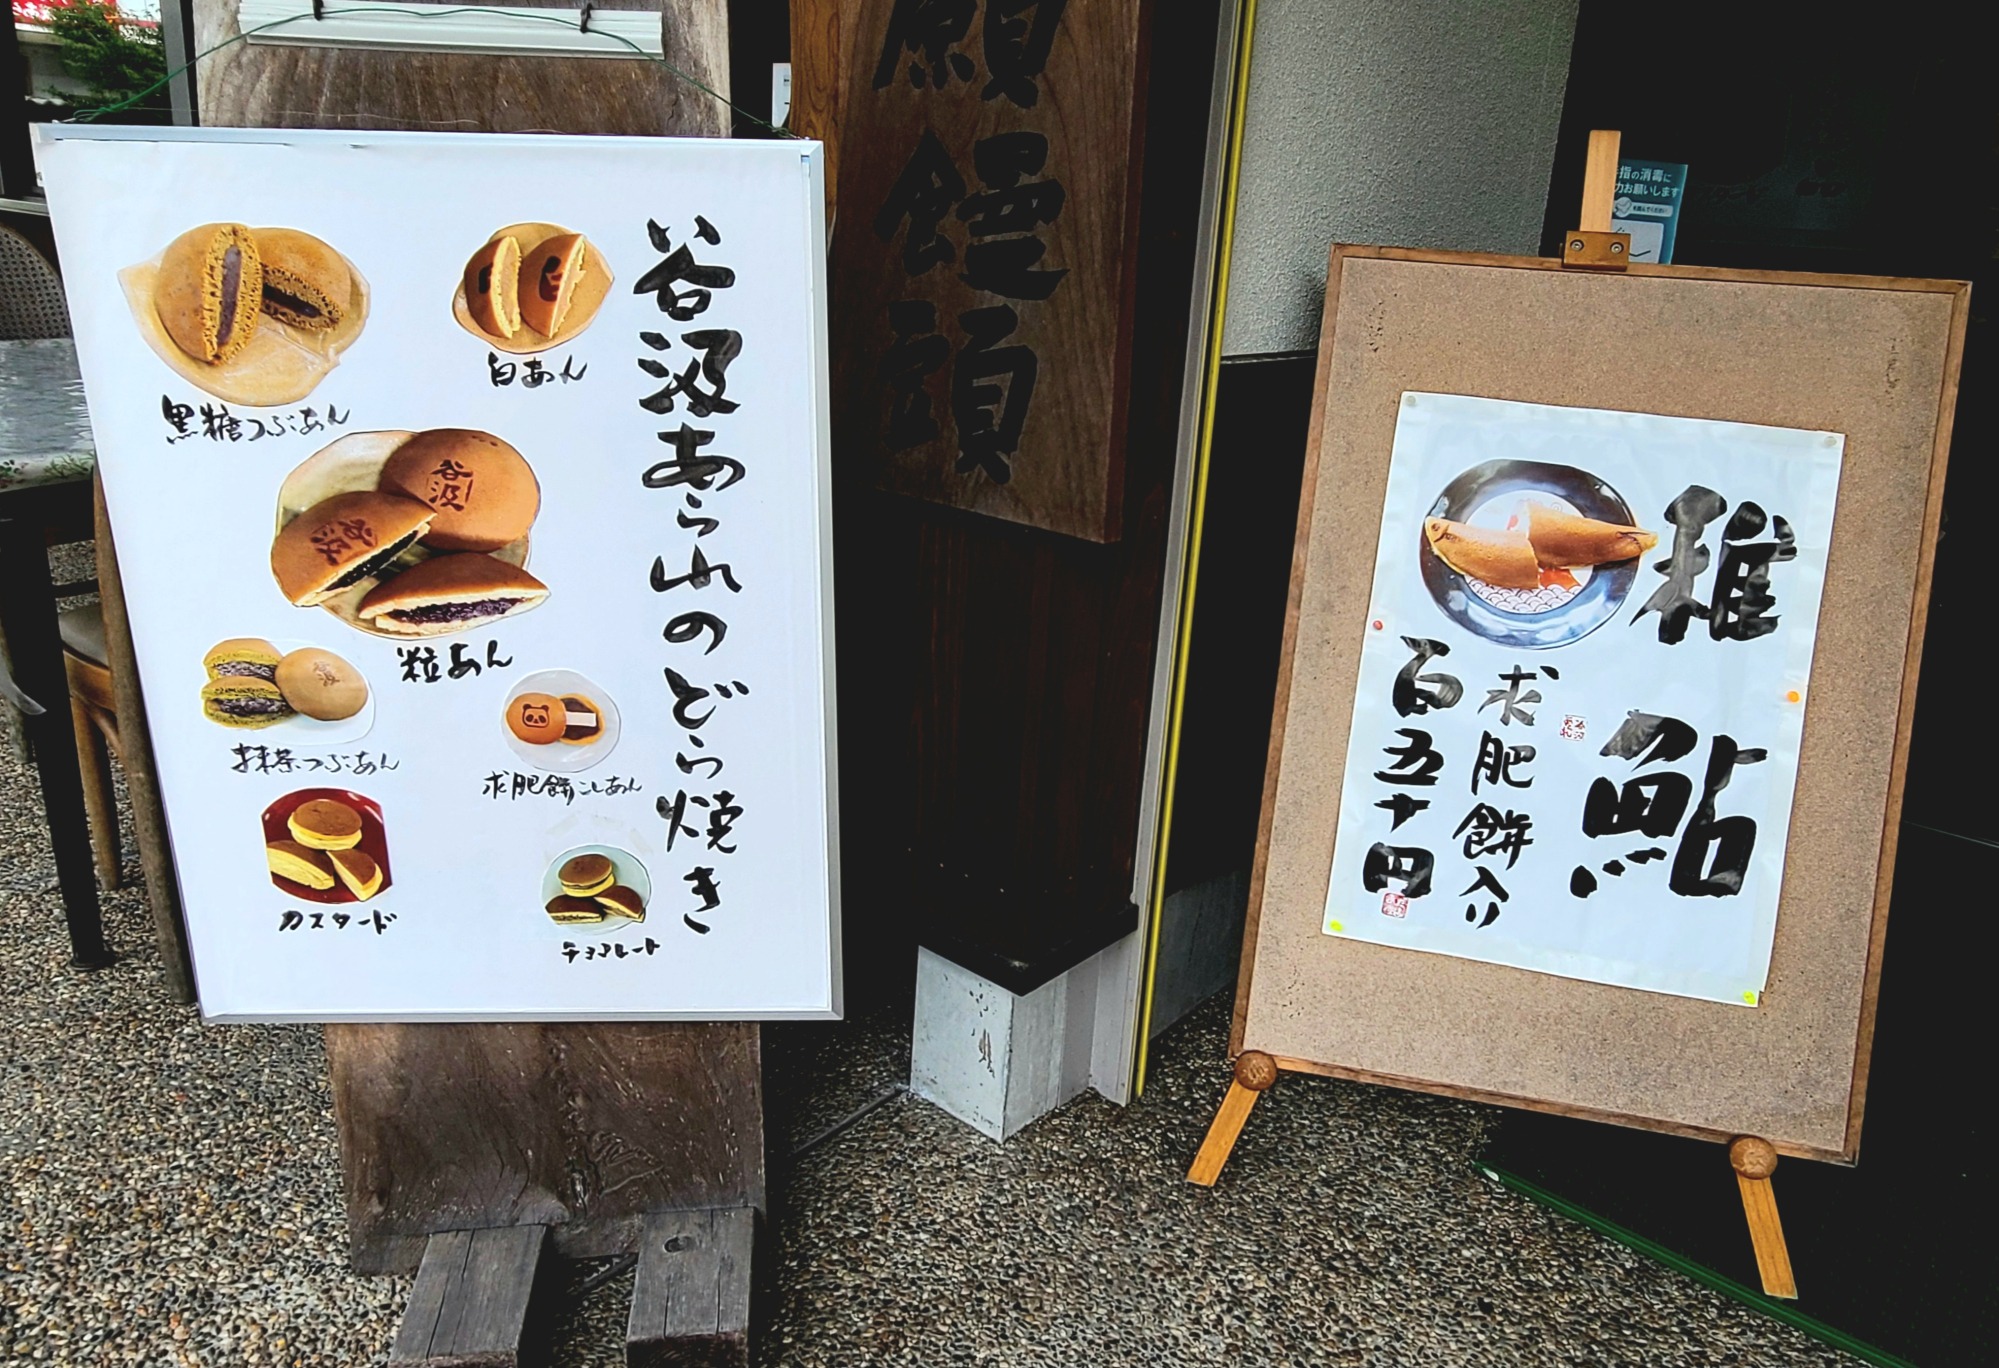 谷汲あられのどら焼き
黒糖つぶあん
白あん
谷汲
谷汲
粒あん
谷汲
抹茶つぶあん
求肥餅こしあん
カスタード
チョコレート
願饅頭
指の消毒に
力お願いします
稚鮎
求肥餅入り
百五十円